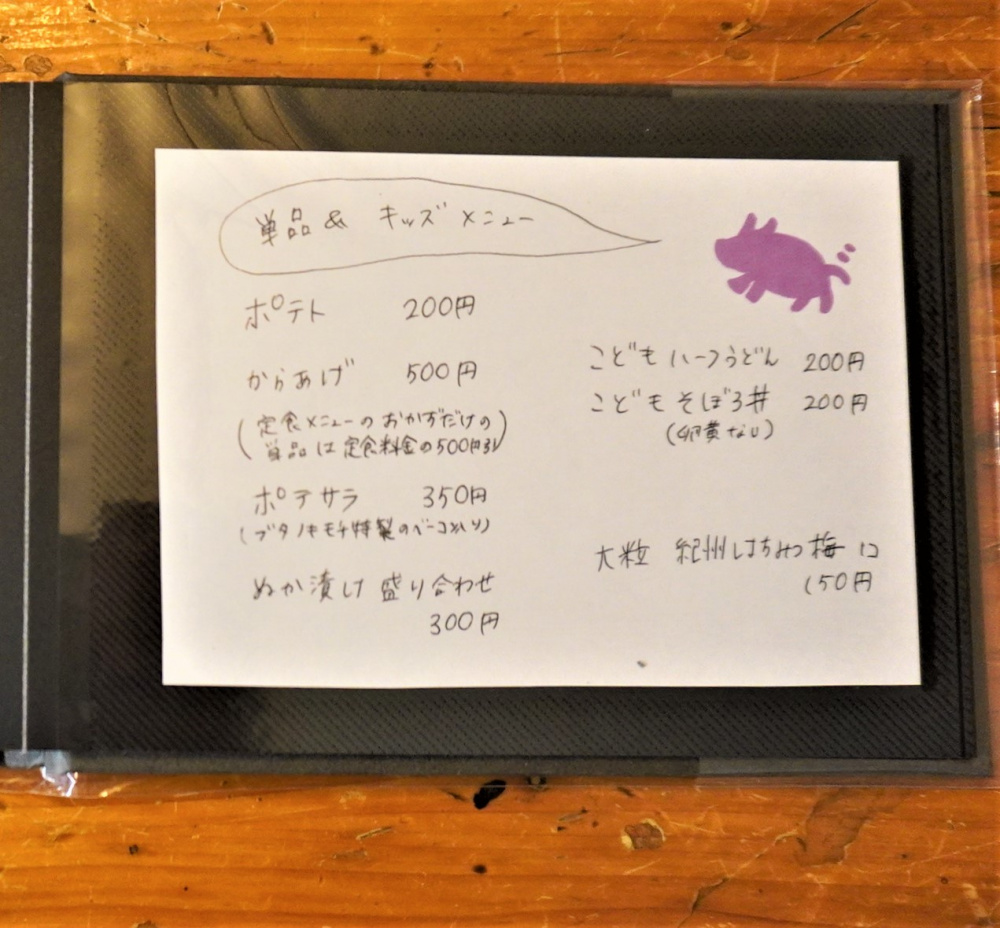 単品& キッズメニュー
ポテト 200円
からあげ 500円
(定食メニューのおかずだけの
単品は定食料金の500円引)
ポテサラ 350円
(ブタノキモチ特製のベーコン入り)
ぬか漬け 盛り合わせ
300円
こども ハーフうどん 200円
こども そぼろ丼 200円
(卵黄なし)
大粒 紀州はちみつ梅 1コ
150円